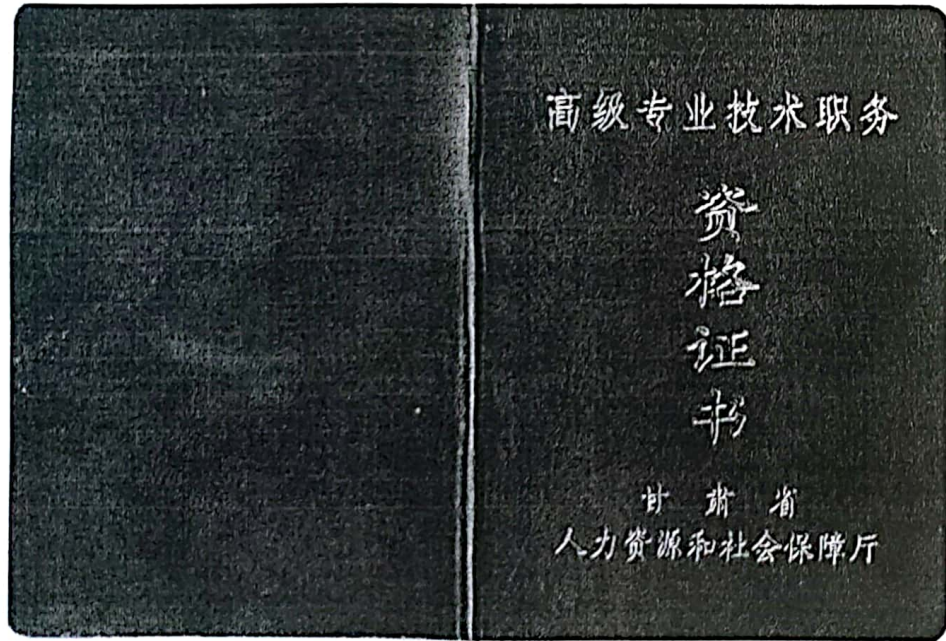 高级专业技术职务
资
格
证
书
甘肃省
人力资源和社会保障厅